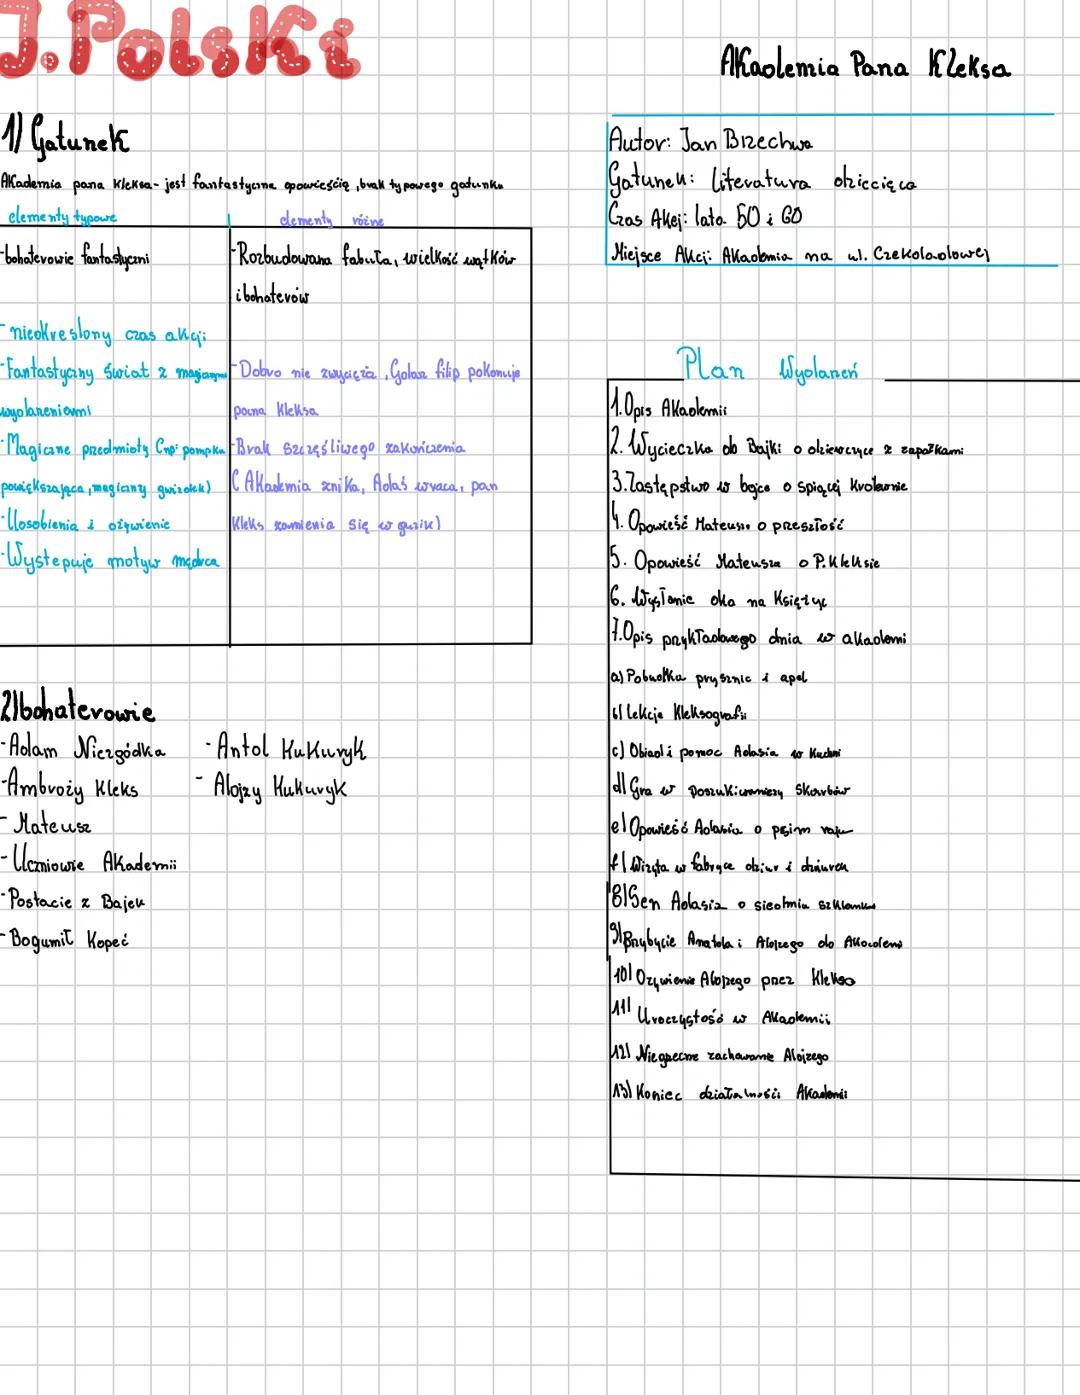 J. Polski
Akademia Pana Kleksa
1) Gatunek
Akademia pana Kleksa- jest fantastyczna opowieścią, brak typowego gatunku
elementy typowe
elementy różne
-bohaterowie fantastyczni
-nieokreslony czas akcji
-Fantastyczny świat z magicznymi
wydarzeniami
-Magiczne przedmioty (np: pompka
powiększająca, magiczny gwizdek)
-Uosobienia i ożywienie
-Wystepuje motyw mędrca
-Rozbudowana fabuła, wielkość wątków
i bohaterów
-Dobro nie zwycięża, Golarz filip pokonuje
pana Kleksa
-Brak szczęśliwego zakończenia
(Akademia znika, Adaś wraca, pan
Kleks zamienia się w guzik)
2) bohaterowie
-Adam Niezgódka
-Ambroży Kleks
-Mateusz
-Uczniowie Akademii
-Postacie z Bajek
-Bogumił Kopeć
-Antol Kukuryk
- Alojzy Kukuryk
Autor: Jan Brzechwa
Gatunek: literatura dziecięca
Czas Akcji: lata 50 i 60
Miejsce Akcji: Akademia na ul. Czekoladowej
Plan Wydarzeń
1. Opis Akademii
2. Wycieczka do Bajki o dziewczyce z zapałkami
3. Zastępstwo w bajce o śpiącej Królewnie
4. Opowieść Mateusza o przeszłość
5. Opowieść Mateusza o P. Kleksie
6. Wysłanie oka na Księżyc
7. Opis przykładowego dnia w akademi
a) Pobudka prysznic i apel
b) lekcje Kleksografii
c) Obiad i pomoc Adasia w Kuchni
d) Gra w poszukiwaniezy Skarbów
e) Opowieść Adasia o psim raju
f) Wizyta w fabryce dziur i dziurek
8) Sen Adasia o siedmiu szklankach
9) Przybycie Anatola i Alojzego do Akademi
10) Ożywienie Alojzego przez Kleksa
11) Uroczystość w Akademii
12) Niegrzeczne zachowanie Alojzego
13) Koniec działalności Akademii